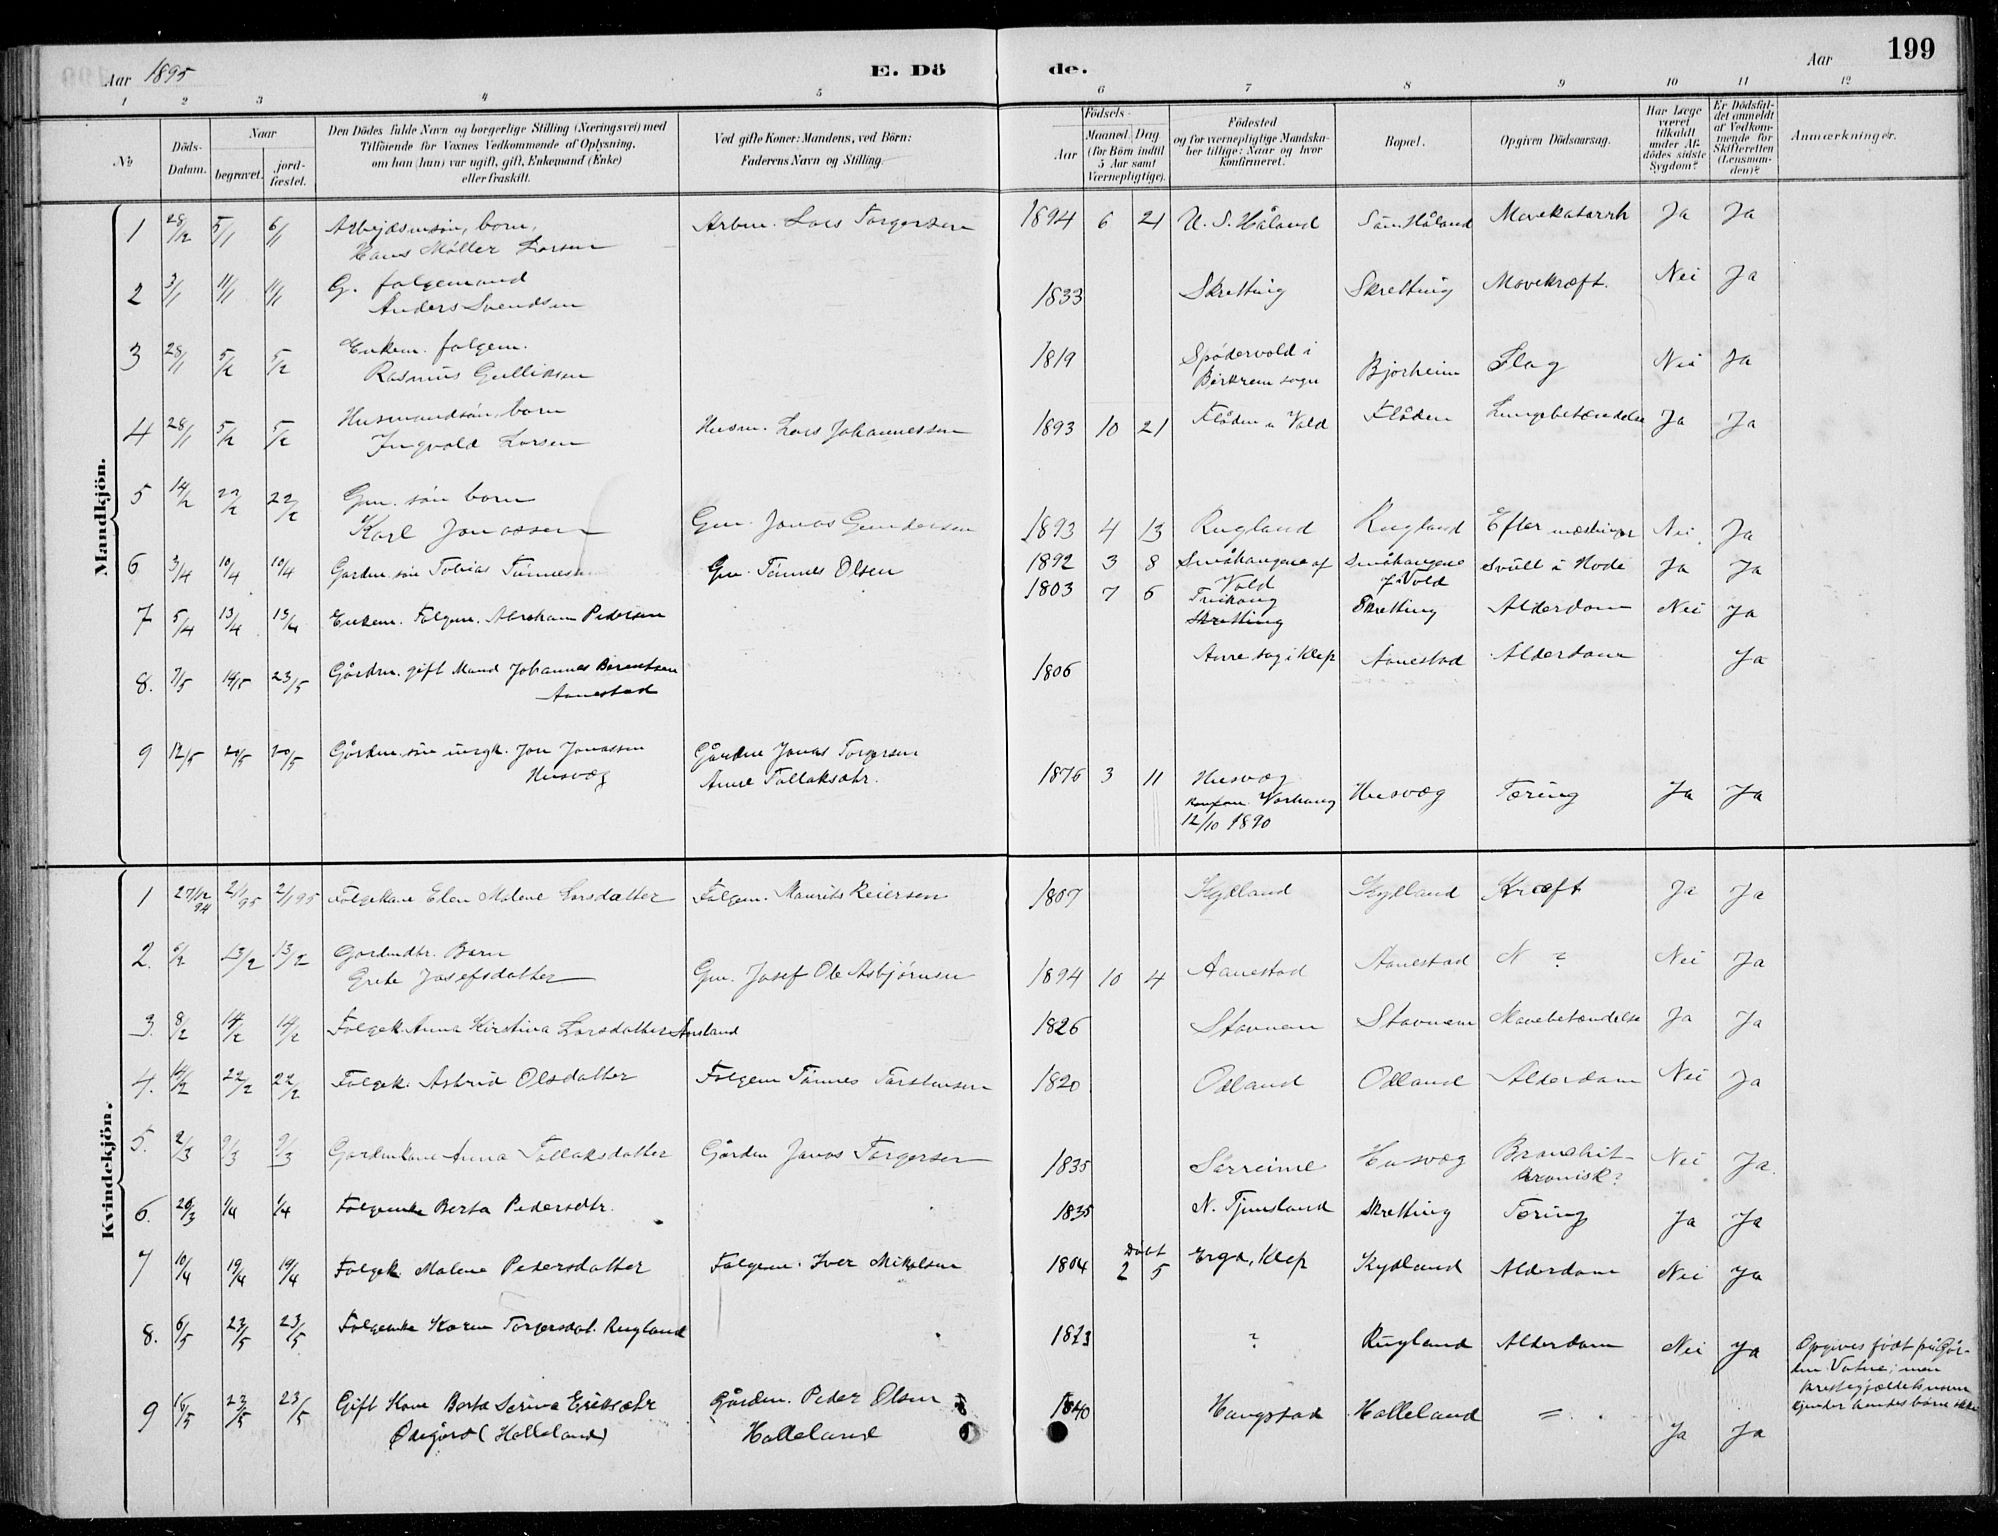 Aar 1895
E. Dö
de.
Aar
199
1 2 3 4 5 6 7 8 9 10 11 12
No
Döds-Datum.
Naar
begravet.
jord-fæstet.
Den Dödes fulde Navn og borgerlige Stilling (Næringsvei) med
Tilföiende for Voxnes Vedkommende af Oplysning,
om han (hun) var ugift, gift, Enkemand (Enke)
eller fraskilt.
Ved gifte Koner: Mandens, ved Börn:
Faderens Navn og Stilling.
Födsels-
Aar
Maaned. Dag
(for Börn indtil
5 Aar samt
Værnepligtige).
Födested
og for værnepligtige Mandska-
ber tillige: Naar og hvor
konfirmeret.
Bopæl.
Opgiven Dödsaarsag.
Har Læge
været
tilkaldt
under Af-
dödes sidste
Sygdom?
Er Dödsfal-
det anmeldt
af Vedkom-
mende for
Skifteretten
(Lensman-
den)?
Anmærkninger.
Mandkjön.
1 28/12 5/1 6/1 Arbejdsmsön, barn, Arbm. Lars Torgersen 1894 6 21 U. S. Håland Sön Håland Mavekatarrh Ja Ja
Hans Møller Larsen
2 3/1 11/1 11/1 G. folgemand 1833 Skretting Skretting Mavekræft. Nei Ja
Anders Svendsen
3 28/1 5/2 5/2 Enkem. folgem. 1819 Spödervold i Bjorheim Slag Nei Ja
Rasmus Gulliksen Birkrem sogn
4 28/1 5/2 5/2 Husmandsön, barn Husm. Lars Johannessen 1893 10 21 Flåden u Vold Flåden Lungebetændelse Ja Ja
Ingvald Larsen
5 14/2 22/2 22/2 Gm. sön barn
Karl Jonassen Gm. Jonas Gundersen 1893 4 13 Rugland Rugland Efter mæslinger Nei. Ja
6 3/4 10/4 10/4 Gardm. sön Tobias Tönnesen Gm. Tönnes Olsen 1892 3 8 Småhaugene af Småhaugene Svulst i Hode Ja Ja
Vold Vold
7 5/4 13/4 13/4 Enkem. Folgem. Abraham Pedersen 1803 7 6 Skretting Skretting Alderdom Nei Ja
8. 7/5 14/5 23/5 Gårdm. gift Mand Johannes Berentsen 1806 Anre sog i Klep Aanestad Alderdom Ja
Aanestad
9 12/5 20/5 20/5 Gårdm. sön ungk. Jon Jonassen Gårdm Jonas Torgersen
Husvæg Anne Tollaksdtr. 1876 3 11 Husvæg Husvæg Tæring Ja Ja
Konfom. Varhaug
12/10 1890
Kvindekjön.
1 27/12 94 2/1 95 2/1 95 Folgekone Elen Malene Larsdatter Folgem. Maurits Reiersen 1807 Kydland Kydland Kræft Ja Ja
2. 5/2 13/2 13/2 Gardmdtr. Barn
Grete Josefsdatter Gm. Josef Ole Asbjörnsen 1894 10 4 Aanestad Aanestad N ? Nei Ja
3. 8/2 14/2 14/2 Folgek Anna Kirstina Larsdatter Ausland 1826 Stavnem Stavnem Mavebetændelse Ja Ja
4. 14/2 22/2 22/2 Folgek. Astrid Olsdatter Folgem Tönnes Tarstensen 1820 Odland Odland Alderdom Nei Ja
5. 2/3 9/3 9/3 Gardmkone Anna Tollaksdatter Gårdm Jonas Torgersen 1835 Sörreime Husvæg Bronchit- Nei Ja.
kronisk?
6. 26/3 4/4 4/4 Folgeenke Berta Pedersdtr. 1835 N. Tjensland Skretting Tæring Ja Ja
7 10/4 19/4 19/4 Folgek Malene Pedersdatter Folgem. Iver Mikalsen 1804 Döbt 2 5 Erga, Klep Kydland Alderdom Nei Ja
8. 6/5 23/5 23/5 Folgeenke Karen Torgersdat. Rugland 1823 ? Rugland Alderdom Nei Ja Opgives födt på Går-
den Vatne; men
prestegjældets navn
kjender hendes börn ikke
9 15/5 23/5 23/5 Gift Kone Berta Serina Eriksdtr Gårdm. Peder Olsen 1840 Haugstad Halleland = Ja Ja
Ödegård (Halleland) Halleland